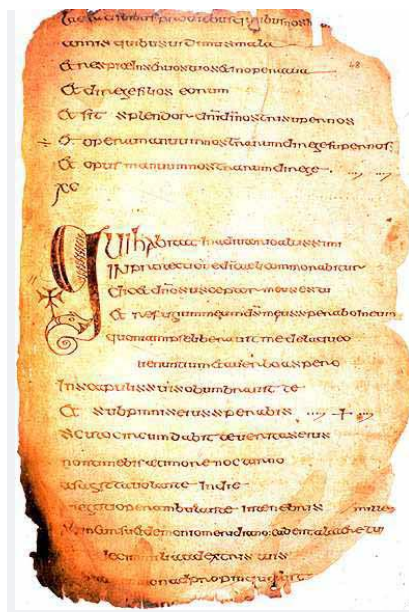 pro diebus quibus nos
annis quibus uidimus mala
Et respice in seruos tuos et in opera tua
48
Et dirige filios eorum
Et sit splendor dni di nostri super nos
÷ Et opera manuum nostrarum dirige super nos:
Et opus manuum nostrarum dirige
xc
Qui habitat in adiutorio altissimi
IN protectione di caeli commorabitur
Dicet dno susceptor meus es tu
Et refugium meum ds meus sperabo in eum
quoniam ipse liberauit me de laqueo
uenantium et a uerbo aspero
In scapulis suis obumbrauit te
Et sub pinnis eius sperabis
scuto circumdabit te ueritas eius
non timebis a timore nocturno
a sagita uolante in die
negotio perambulante in tenebris
mille
ab incursu et demonio meridiano: cadent a latere tuo
decim milia a dextris tuis
non adpropinquabit